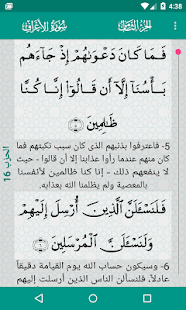 4:38
سورة الأعراف
الجزء الثامن
فَمَا كَانَ دَعْوَىٰهُمْ إِذْ جَآءَهُم
بَأْسُنَآ إِلَّآ أَن قَالُوٓا۟ إِنَّا كُنَّا
ظَٰلِمِينَ ۝٥
5- فاعترفوا بذنبهم الذى كان سبب نكبتهم فما
كان منهم عندما رأوا عذابنا إلا أن قالوا - حيث لا
ينفعهم ذلك - إنا كنا ظالمين لأنفسنا
بالمعصية ولم يظلمنا الله بعذابه.
الحزب 16
فَلَنَسْـَٔلَنَّ ٱلَّذِينَ أُرْسِلَ إِلَيْهِمْ
وَلَنَسْـَٔلَنَّ ٱلْمُرْسَلِينَ ۝٦
6- وسيكون حساب الله يوم القيامة دقيقاً
عادلاً، فلنسألن الناس الذين أرسلت إليهم